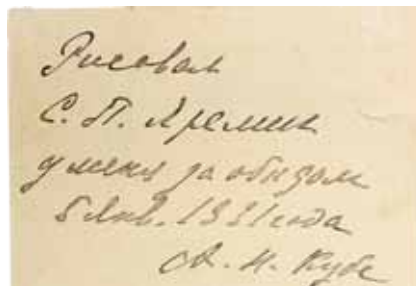 Рисовал
С. П. Яремич
у меня за обедом
5 Янв. 1921 года
А. Н. Кубе